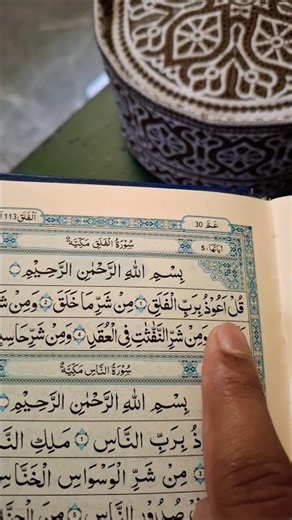 عَمَّ 30 الفلق 113
اٰیَاتُهَا ٥ سُوْرَةُ الْفَلَقِ مَكِّيَّةٌ
بِسْمِ اللّٰهِ الرَّحْمٰنِ الرَّحِيْمِ
قُلْ اَعُوْذُ بِرَبِّ الْفَلَقِ ۝١ مِنْ شَرِّ مَا خَلَقَ ۝٢ وَمِنْ
وَمِنْ شَرِّ النَّفّٰثٰتِ فِي الْعُقَدِ ۝٤ وَمِنْ شَرِّ حَاسِدٍ
سُوْرَةُ النَّاسِ مَكِّيَّةٌ
بِسْمِ اللّٰهِ الرَّحْمٰنِ الرَّحِيْمِ
بِرَبِّ النَّاسِ ۝١ مَلِكِ
مِنْ شَرِّ الْوَسْوَاسِ الْخَنَّاسِ
صُدُوْرِ النَّاسِ ۝٥ مِنَ